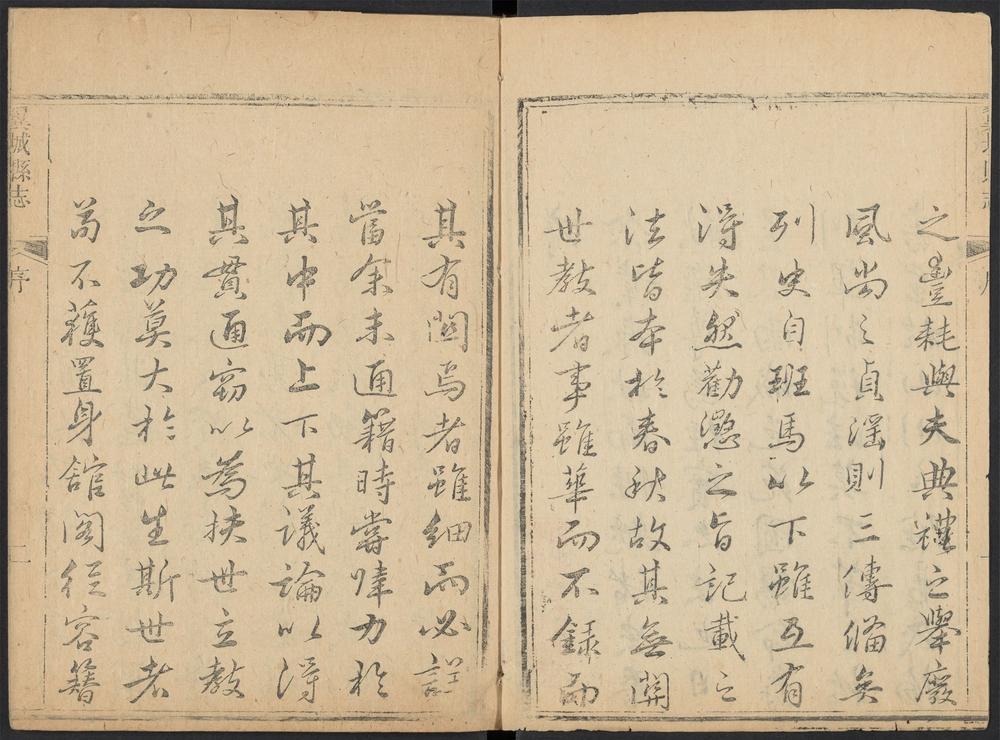 之豊耗與夫典禮之舉廢
風尚之貞淫則三傳偹矣
列史自班馬以下雖互有
得失然勸懲之旨記載之
法皆本於春秋故其無關
世教者事雖華而不錄而
其有関焉者雖細而必詳
當余未通籍時嘗肆力於
其中而上下其議論以得
其貫通竊以為扶世立教
之功莫大於此生斯世者
茍不獲置身舘閣從容簪
翼城縣志
序
二